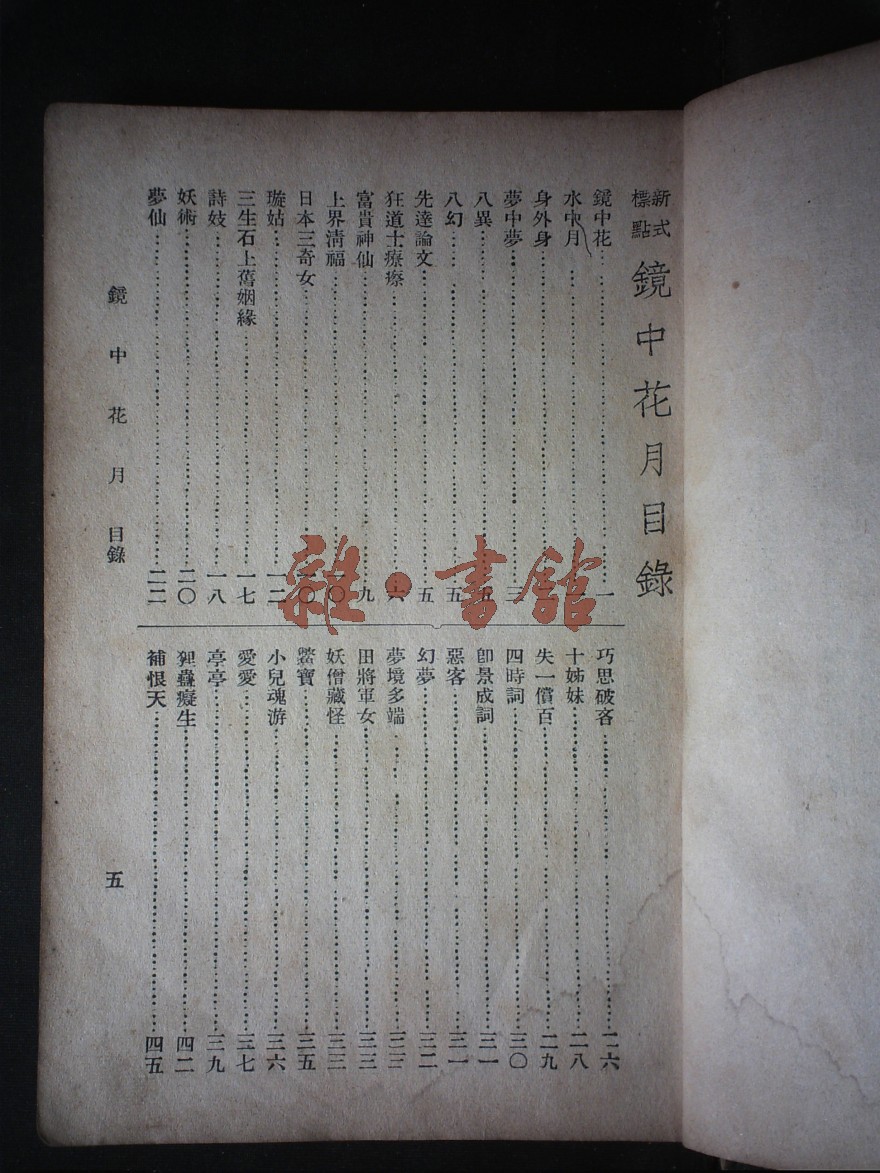 新式標點 鏡中花月目錄
鏡中花 一
水中月
身外身
夢中夢 三
八異 五
八幻 五
先達論文 五
狂道士療瘵 六
富貴神仙 九
上界清福 一〇
日本三奇女 一〇
璇姑 一二
三生石上舊姻緣 一七
詩妓 一八
妖術 二〇
夢仙 二二
巧思破吝 二六
十姊妹 二八
失一償百 二九
四時詞 三〇
卽景成詞 三一
惡客 三一
幻夢 三二
夢境多端 三三
田將軍女 三三
妖僧藏怪 三三
鱉寶 三五
小兒魂游 三六
愛愛 三七
亭亭 三九
狸蠱癡生 四二
補恨天 四五
鏡中花月 目錄
五
雜·書館